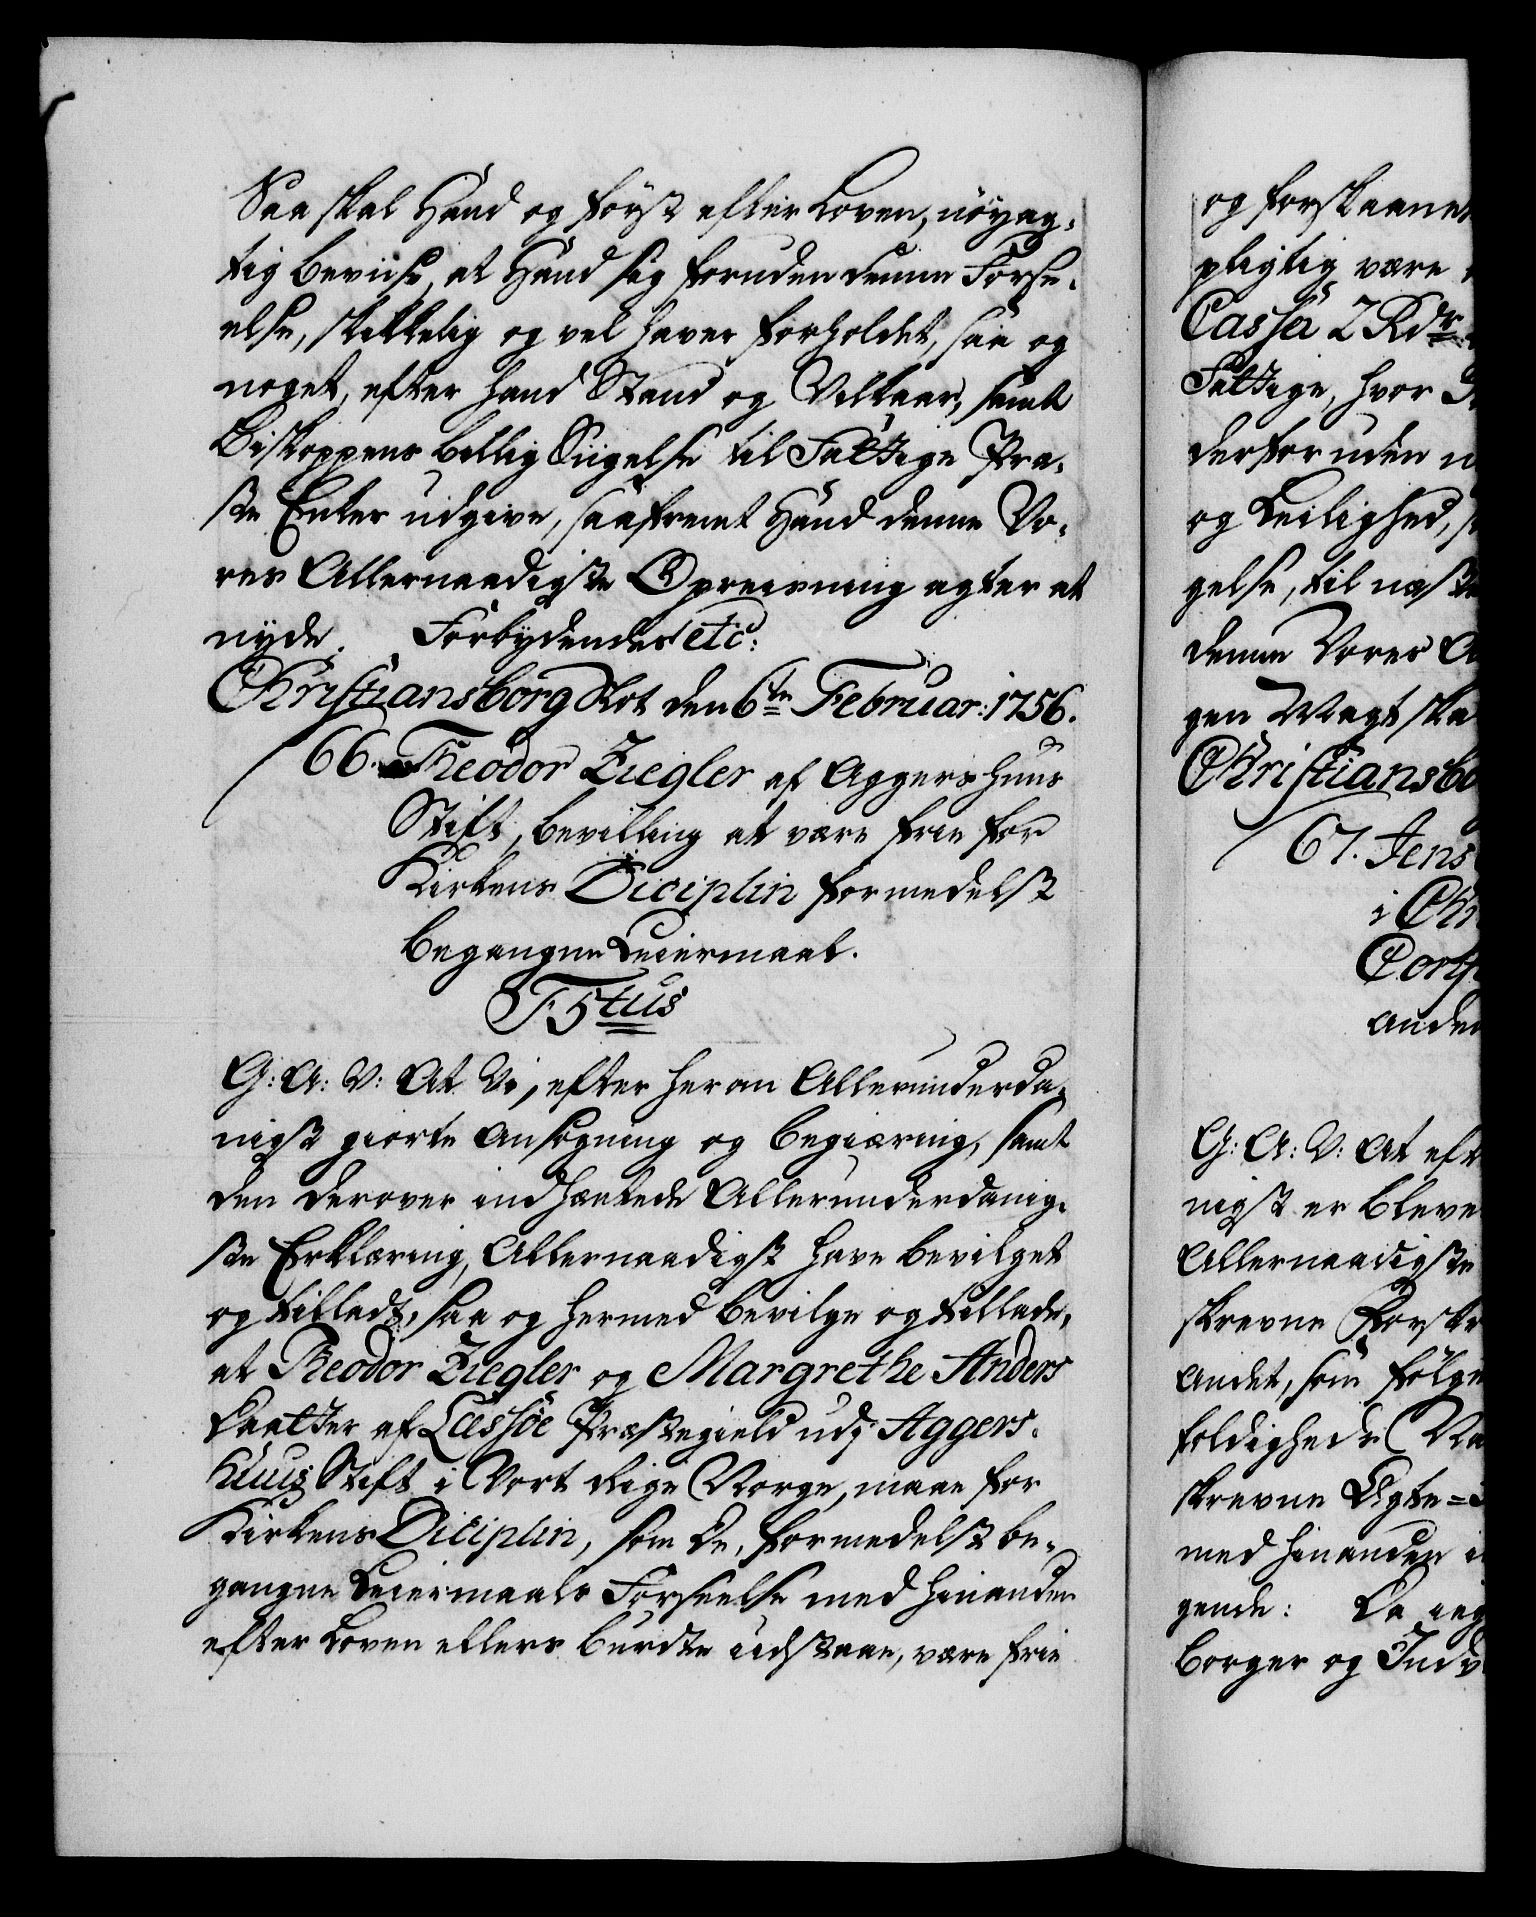 Saa skal Hand og først efter Loven, nöyag-
tig beviise, at Hand sig foruden denne Forse-
else, skikkelig og vel haver forholdet, saa og
noget, efter hans Stand og Velkaar, samt
Biskoppens billig Siigelse til Fattige Præ-
ste Enker udgive, saafremt Hand denne Vo-
res Allernaadigste Opreisning agter at
nyde. Forbydendes etc:
Christiansborg Slot den 6te Februar: 1756.
66. Theodor Ziegler af Aggershuus
Stift, bevilling at være frie for
Kirkens Diciplin formedelst
begangne Leiermaal.
F. 5tus
G: A: V: At Vi, efter heran Allerunderda-
nigst giorte Ansøgning og begiæring, samt
den derover indhæntede Allerunderdanig-
ste Erklæring, Allernaadigst have bevilget
og tilladt, saa og hermed bevilge og tillade,
at Theodor Ziegler og Margrethe Anders
Daatter af Læssöe Præstegield udj Aggers-
huus Stift i Vort Rige Norge, maae for
Kirkens Diciplin, som De, formedelst be-
gangne Leiermaals Forseelse med hinanden
efter Loven ellers burdte udstaae, være frie
og forskaanet
pligtig være
Cassa 2 Rdr
Fattige, hvor
derforuden
og Leilighed,
gelse, til næste
denne Vores
gen Magt ska
Christiansbo
67. Jens
i Chri
anden
G: A: V: At eft
nigst er bleve
Allernaadigste
skrevne Forskr
andet, som følge
foldigheds Na
skrevne Egte=
med hinanden i
gende: Da
Borger og Indv